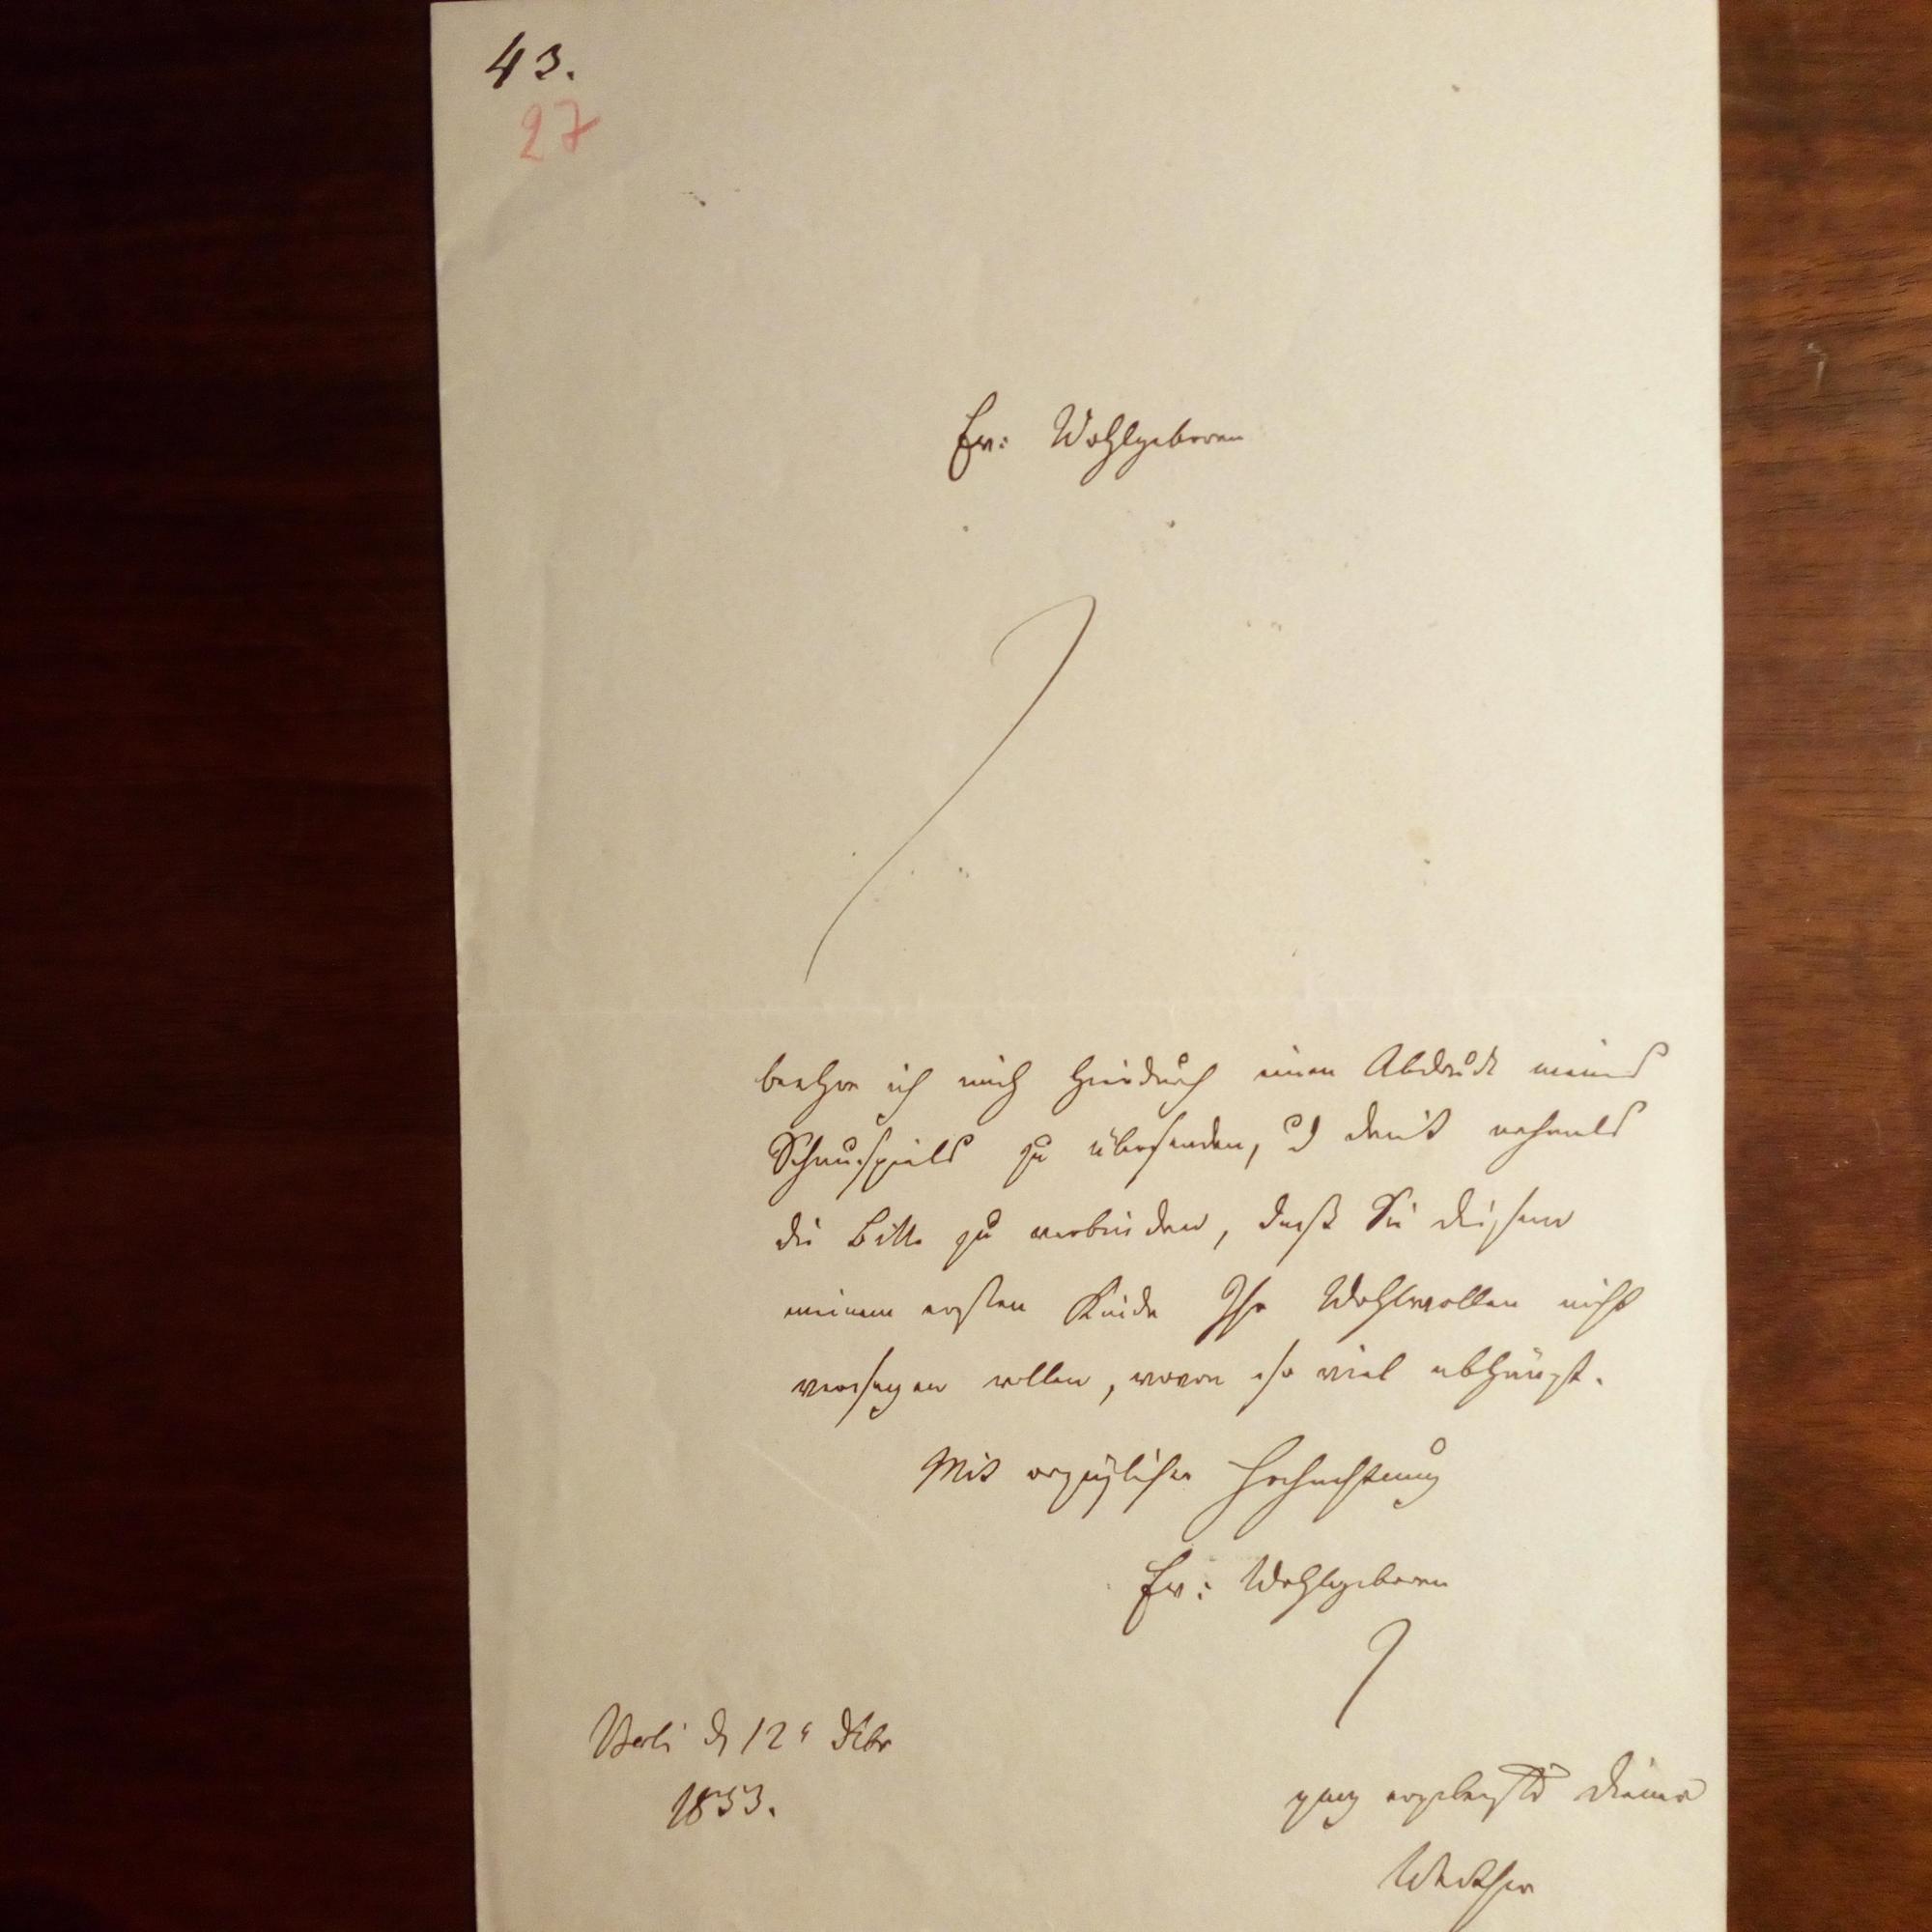 43.
27
Ew: Wohlgeboren
beehre ich mich hierdurch einen Abdruck meines
Schauspiels zu übersenden, u damit nochmals
die Bitte zu verbinden, daß Sie diesem
meinem ersten Kinde Ihr Wohlwollen nicht
versagen wollen, wovon so viel abhängt.
Mit vorzüglicher Hochachtung
Ew: Wohlgeboren
12
1853.
ganz ergebenster Diener